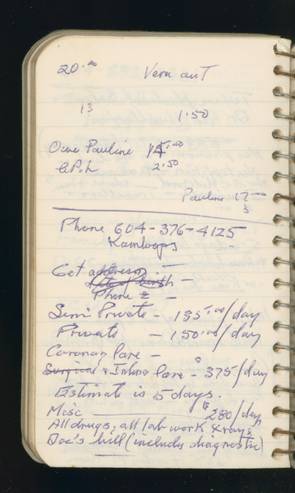 20.00 Vern out
13 1.50
Owe Pauline 15.00
G.P.L 2.50
Pauline 12
3
Phone 604-376-4125
Kamloops
Get address -
Phone # -
Semi Private - 135.00/day
Private - 150.00/day
Coronary Care -
Surgical & Intens Care - 375/day
Estimate is 5 days.
Misc $280/day
All drugs, all lab work Xrays
Doc's bill (includes diagnostic)